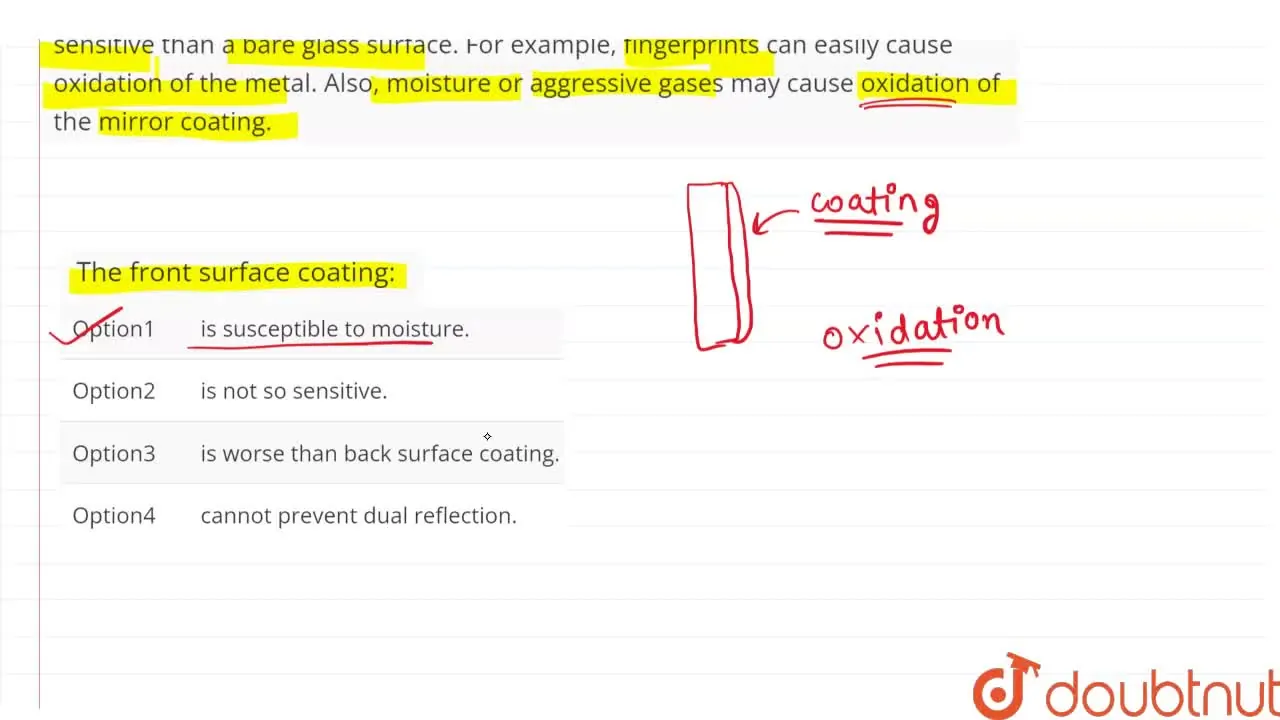 sensitive than a bare glass surface. For example, fingerprints can easily cause
oxidation of the metal. Also, moisture or aggressive gases may cause oxidation of
the mirror coating.
coating
The front surface coating:
Option1 is susceptible to moisture.
oxidation
Option2 is not so sensitive.
Option3 is worse than back surface coating.
Option4 cannot prevent dual reflection.
doubtnut